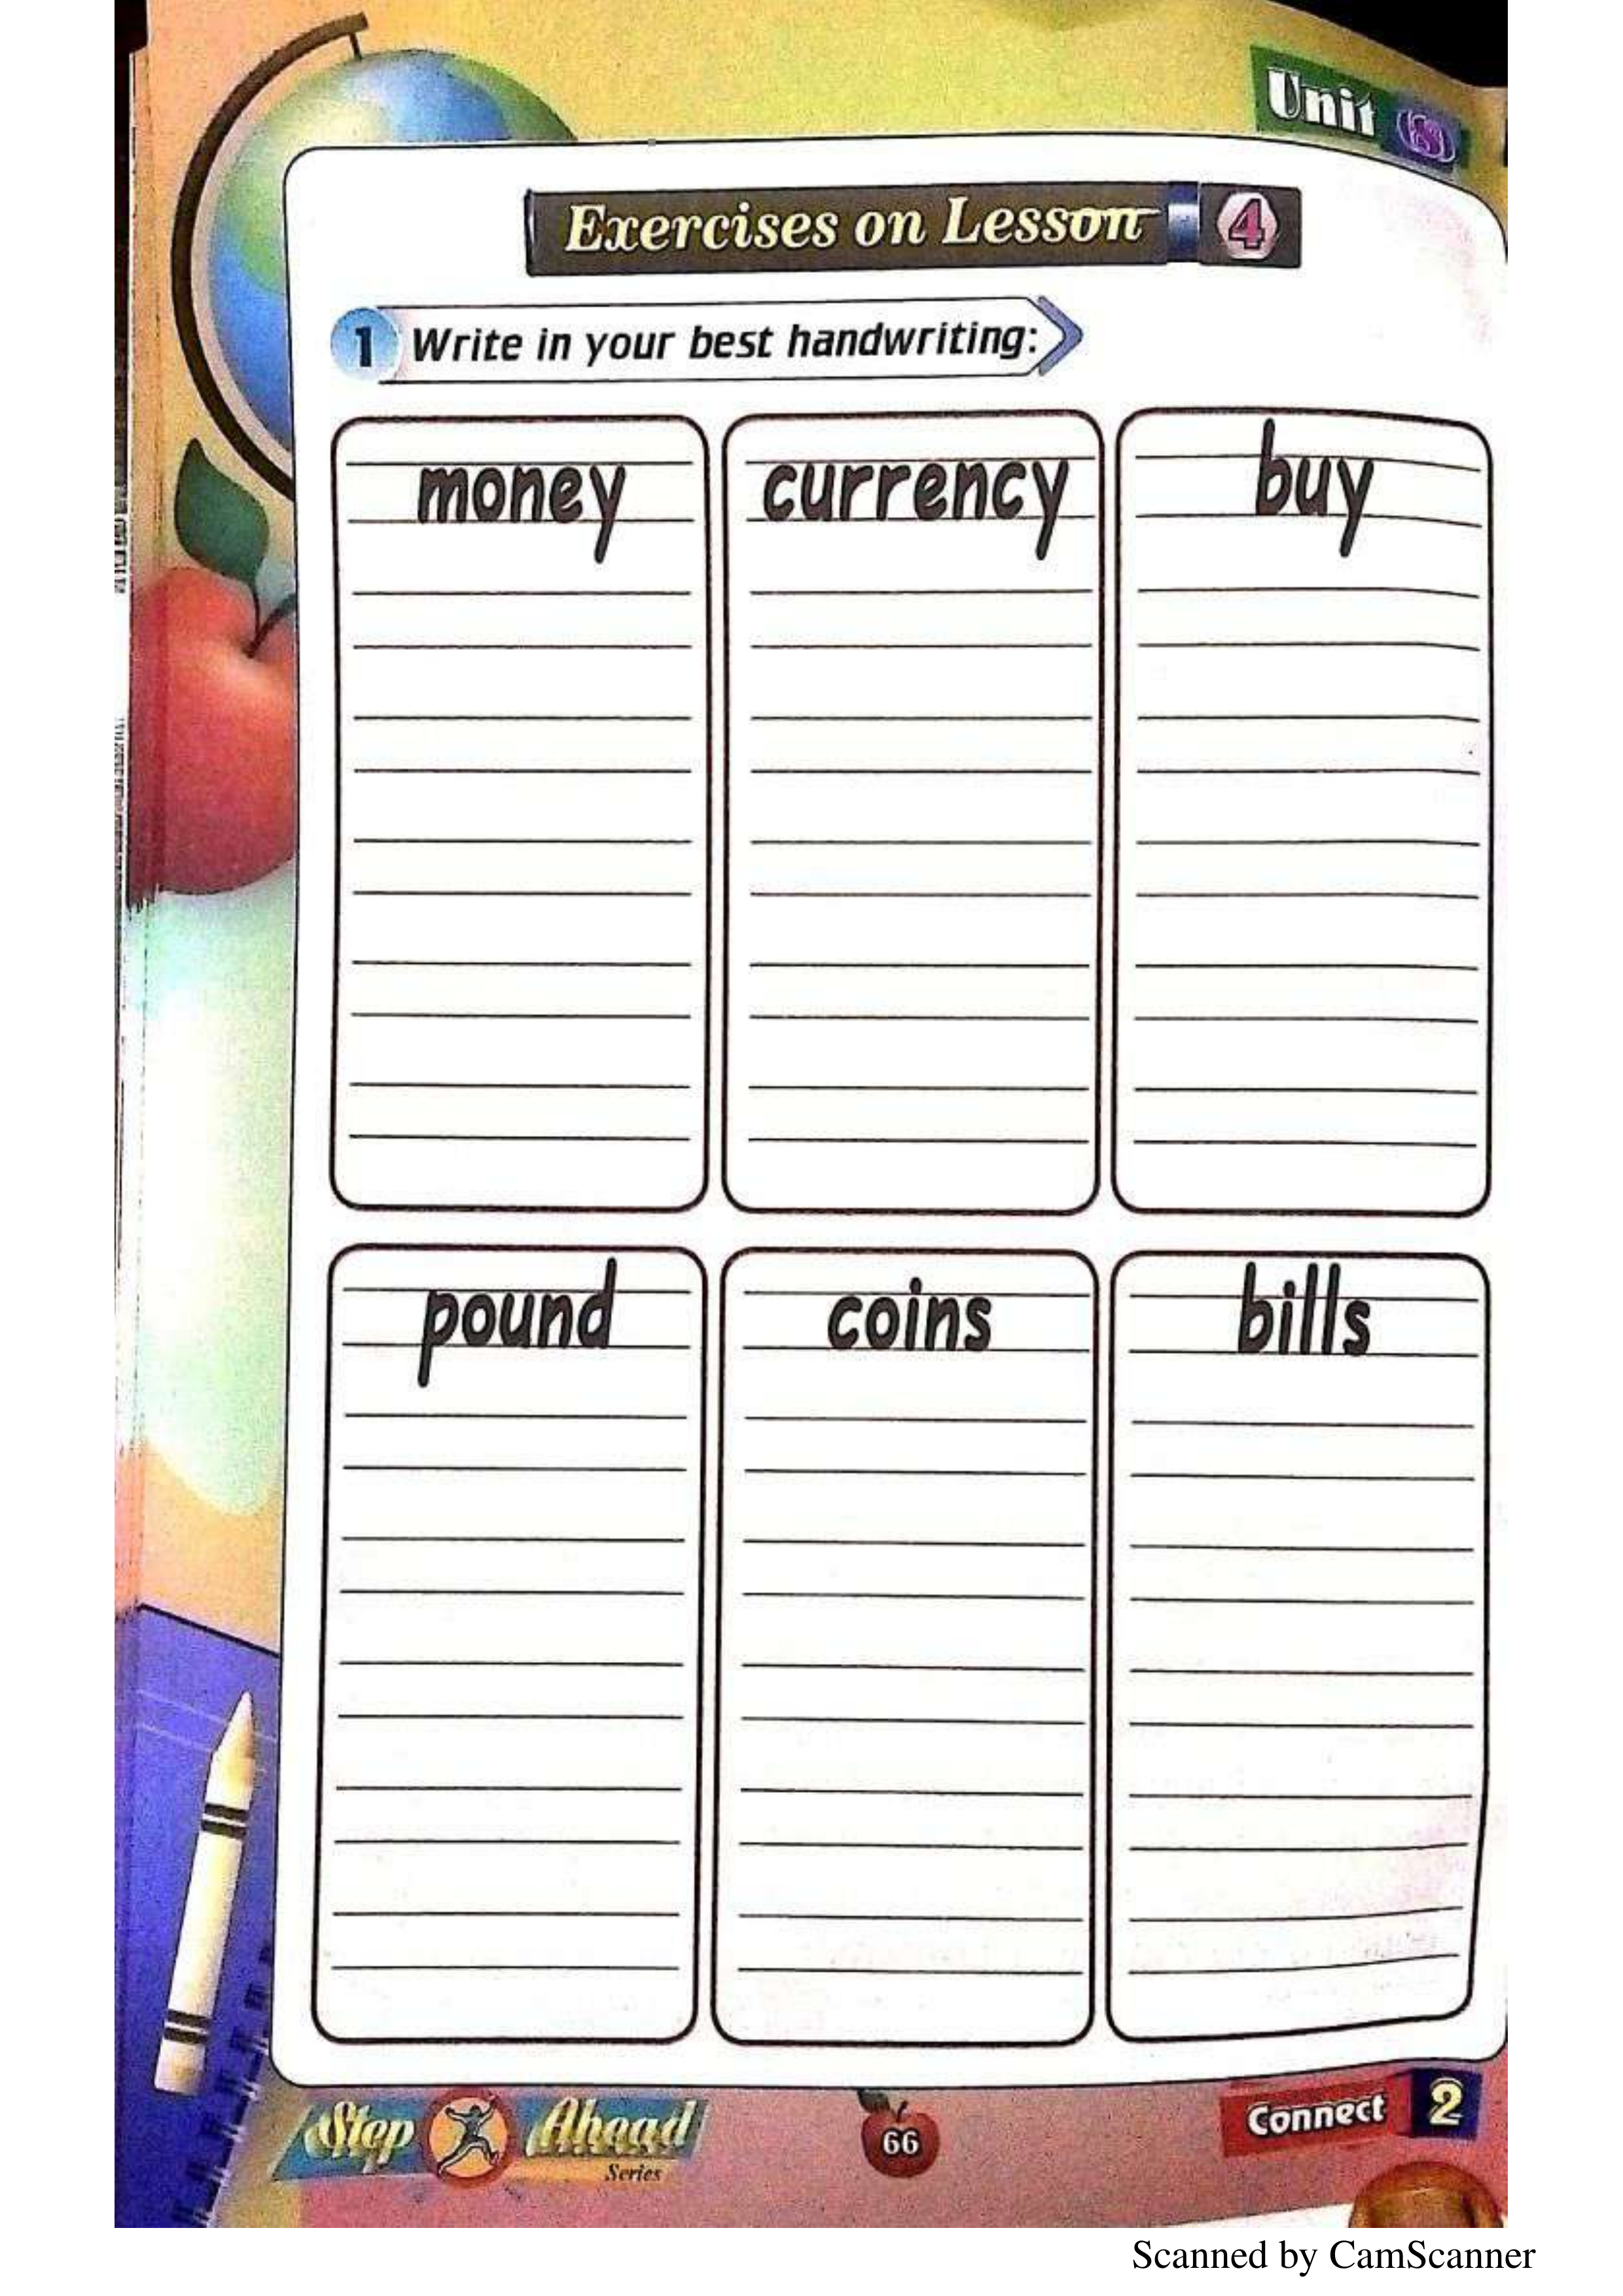 Unit
Exercises on Lesson 4
1 Write in your best handwriting:
money currency buy
pound coins bills
Step Ahead
Series
66
Connect 2
Scanned by CamScanner